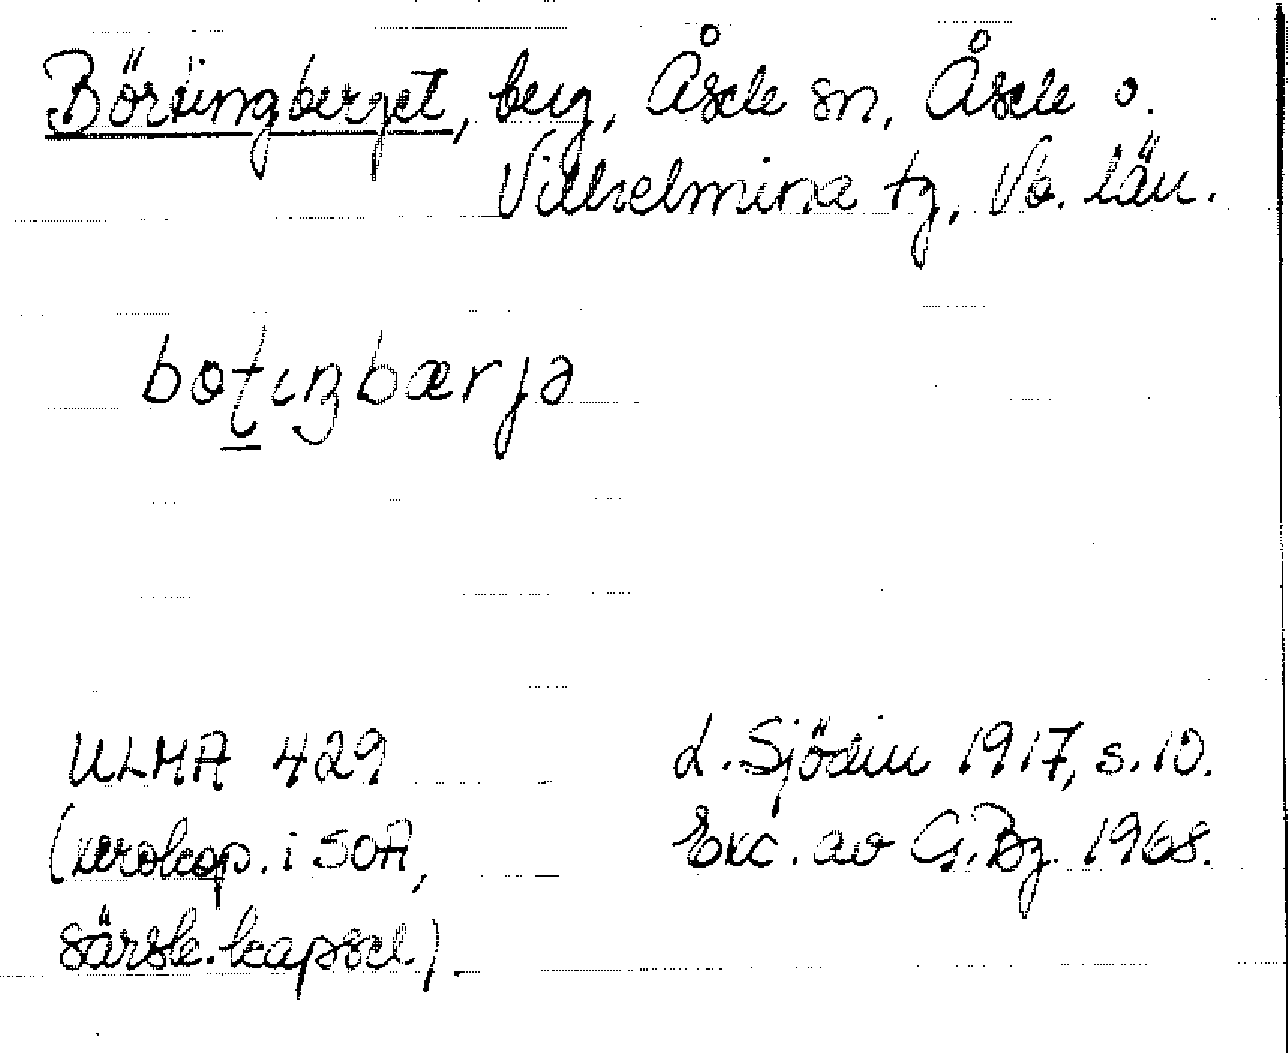 Börtingberget, berg, Åsele sn, Åsele o.
Vilhelmina tg, Vb. län.
bøtıŋbærjə
ULMA 429
(xerokop. i SOA,
särsk. kapsel.)
L. Sjödin 1917, s. 10.
Exc. av G. Bg. 1968.